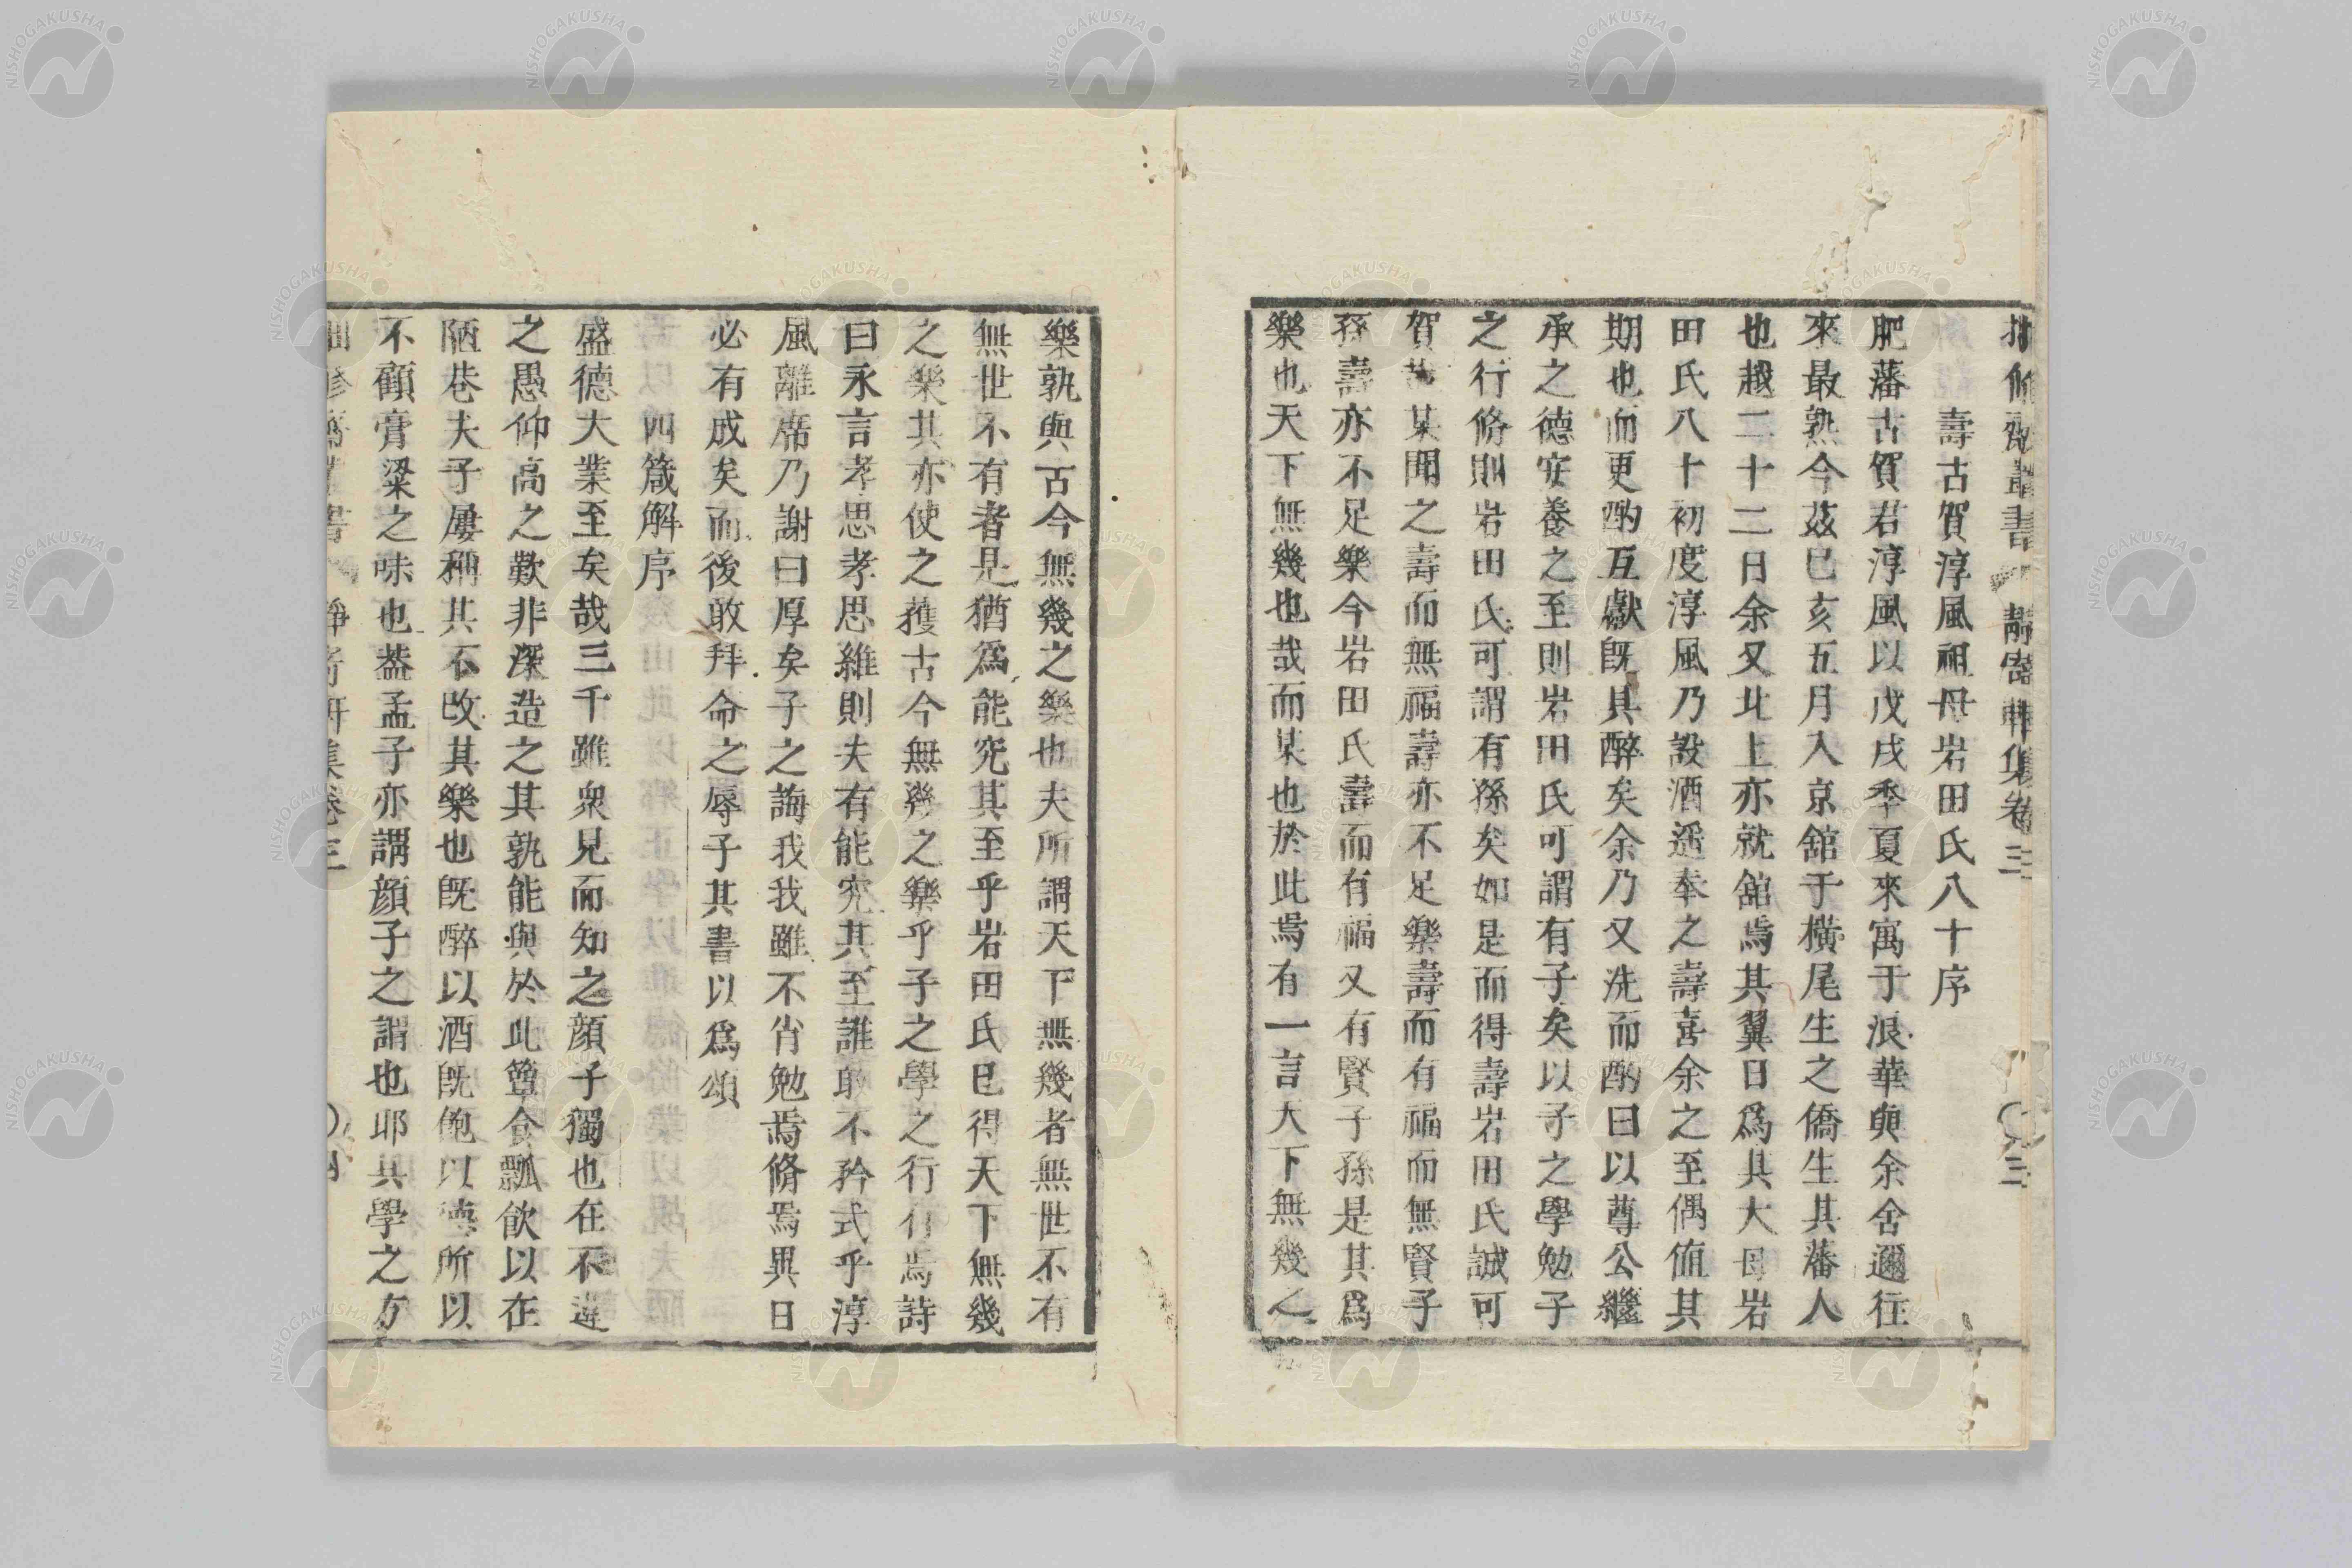 拙脩齋叢書 靜寄軒集卷三 〇三
壽古賀淳風祖母岩田氏八十序
肥藩古賀君淳風以戊戌季夏來寓于浪華與余舍邇往
來最熟今茲已亥五月入京舘于橫尾生之僑生其藩人
也越二十二日余又北上亦就舘焉其翼日爲其大母岩
田氏八十初度淳風乃設酒遥奉之壽喜余之至偶值其
期也而更酌互獻旣具醉矣余乃又洗而酌曰以尊公繼
承之德安養之至則岩田氏可謂有子矣以子之學勉子
之行脩則岩田氏可謂有孫矣如是而得壽岩田氏誠可
賀某聞之壽而無福壽亦不足樂壽而有福而無賢子
孫壽亦不足樂今岩田氏壽而有福又有賢子孫是其爲
樂也天下無幾也哉而某也於此焉有一言天下無幾人
樂孰與古今無幾之樂也夫所謂天下無幾者無世不有
無世不有者是猶爲能究其至乎岩田氏已得天下無幾
之樂其亦使之獲古今無幾之樂乎子之學之行有焉詩
曰永言孝思孝思維則夫有能究其至誰敢不矜式乎淳
風離席乃謝曰厚矣子之誨我我雖不肖勉焉脩焉異日
必有成矣而後敢拜命之辱子其書以爲頌
四箴解序
盛德大業至矣哉三千雖衆見而知之顔子獨也在不違
之愚仰高之歎非深造之其孰能與於此簞食瓢飮以在
陋巷夫子屢稱其不改其樂也旣醉以酒旣飽以德所以
不顧膏粱之味也葢孟子亦謂顔子之謂也耶其學之方
拙脩齋叢書 靜寄軒集卷三 〇四
NISHOGAKUSHA